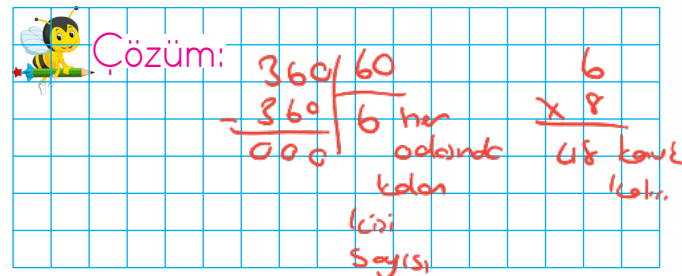 Çözüm:
360 60
- 360 6 her
000 odasında
kalan
kişi
sayısı
6
x 8
48 konuk
kalır.